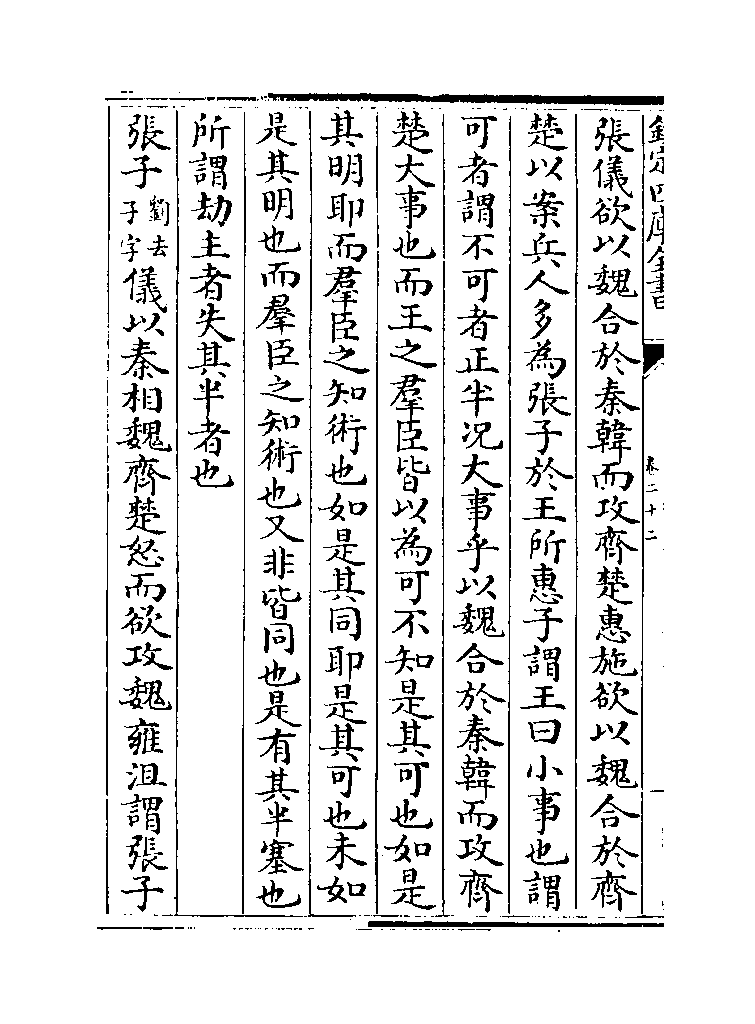 欽定四庫全書
卷二十二
張儀欲以魏合於秦韓而攻齊楚惠施欲以魏合於齊
楚以案兵人多為張子於王所惠子謂王曰小事也謂
可者謂不可者正半况大事乎以魏合於秦韓而攻齊
楚大事也而王之羣臣皆以為可不知是其可也如是
其明耶而羣臣之知術也如是其同耶是其可也未如
是其明也而羣臣之知術也又非皆同也是有其半塞也
所謂劫主者失其半者也
張子劉去子字儀以秦相魏齊楚怒而欲攻魏雍沮謂張子